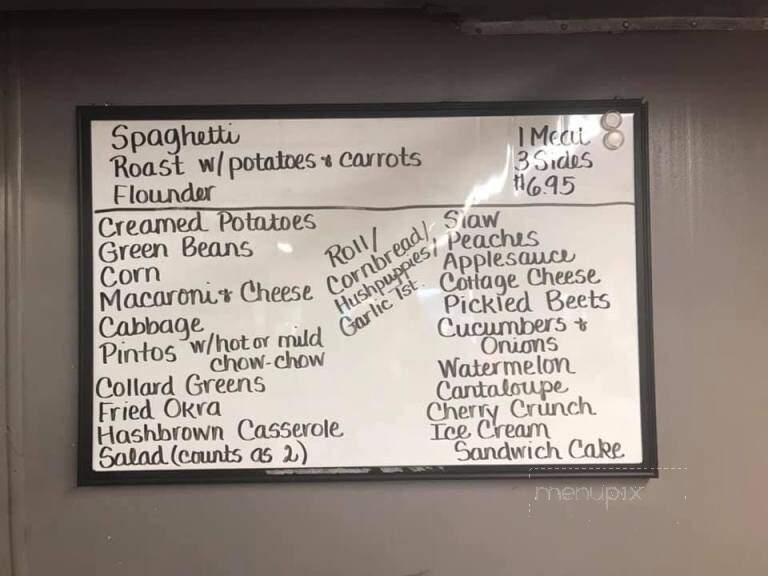 Spaghetti
Roast w/potatoes & carrots
Flounder
1 Meat
3 Sides
$6.95
Creamed Potatoes
Green Beans
Corn
Macaroni & Cheese
Cabbage
Pintos w/hot or mild
chow-chow
Collard Greens
Fried Okra
Hashbrown Casserole
Salad (counts as 2)
Roll/
Cornbread/
Hushpuppies/
Garlic Tst.
Slaw
Peaches
Applesauce
Cottage Cheese
Pickled Beets
Cucumbers &
Onions
Watermelon
Cantaloupe
Cherry Crunch
Ice Cream
Sandwich Cake
menupix